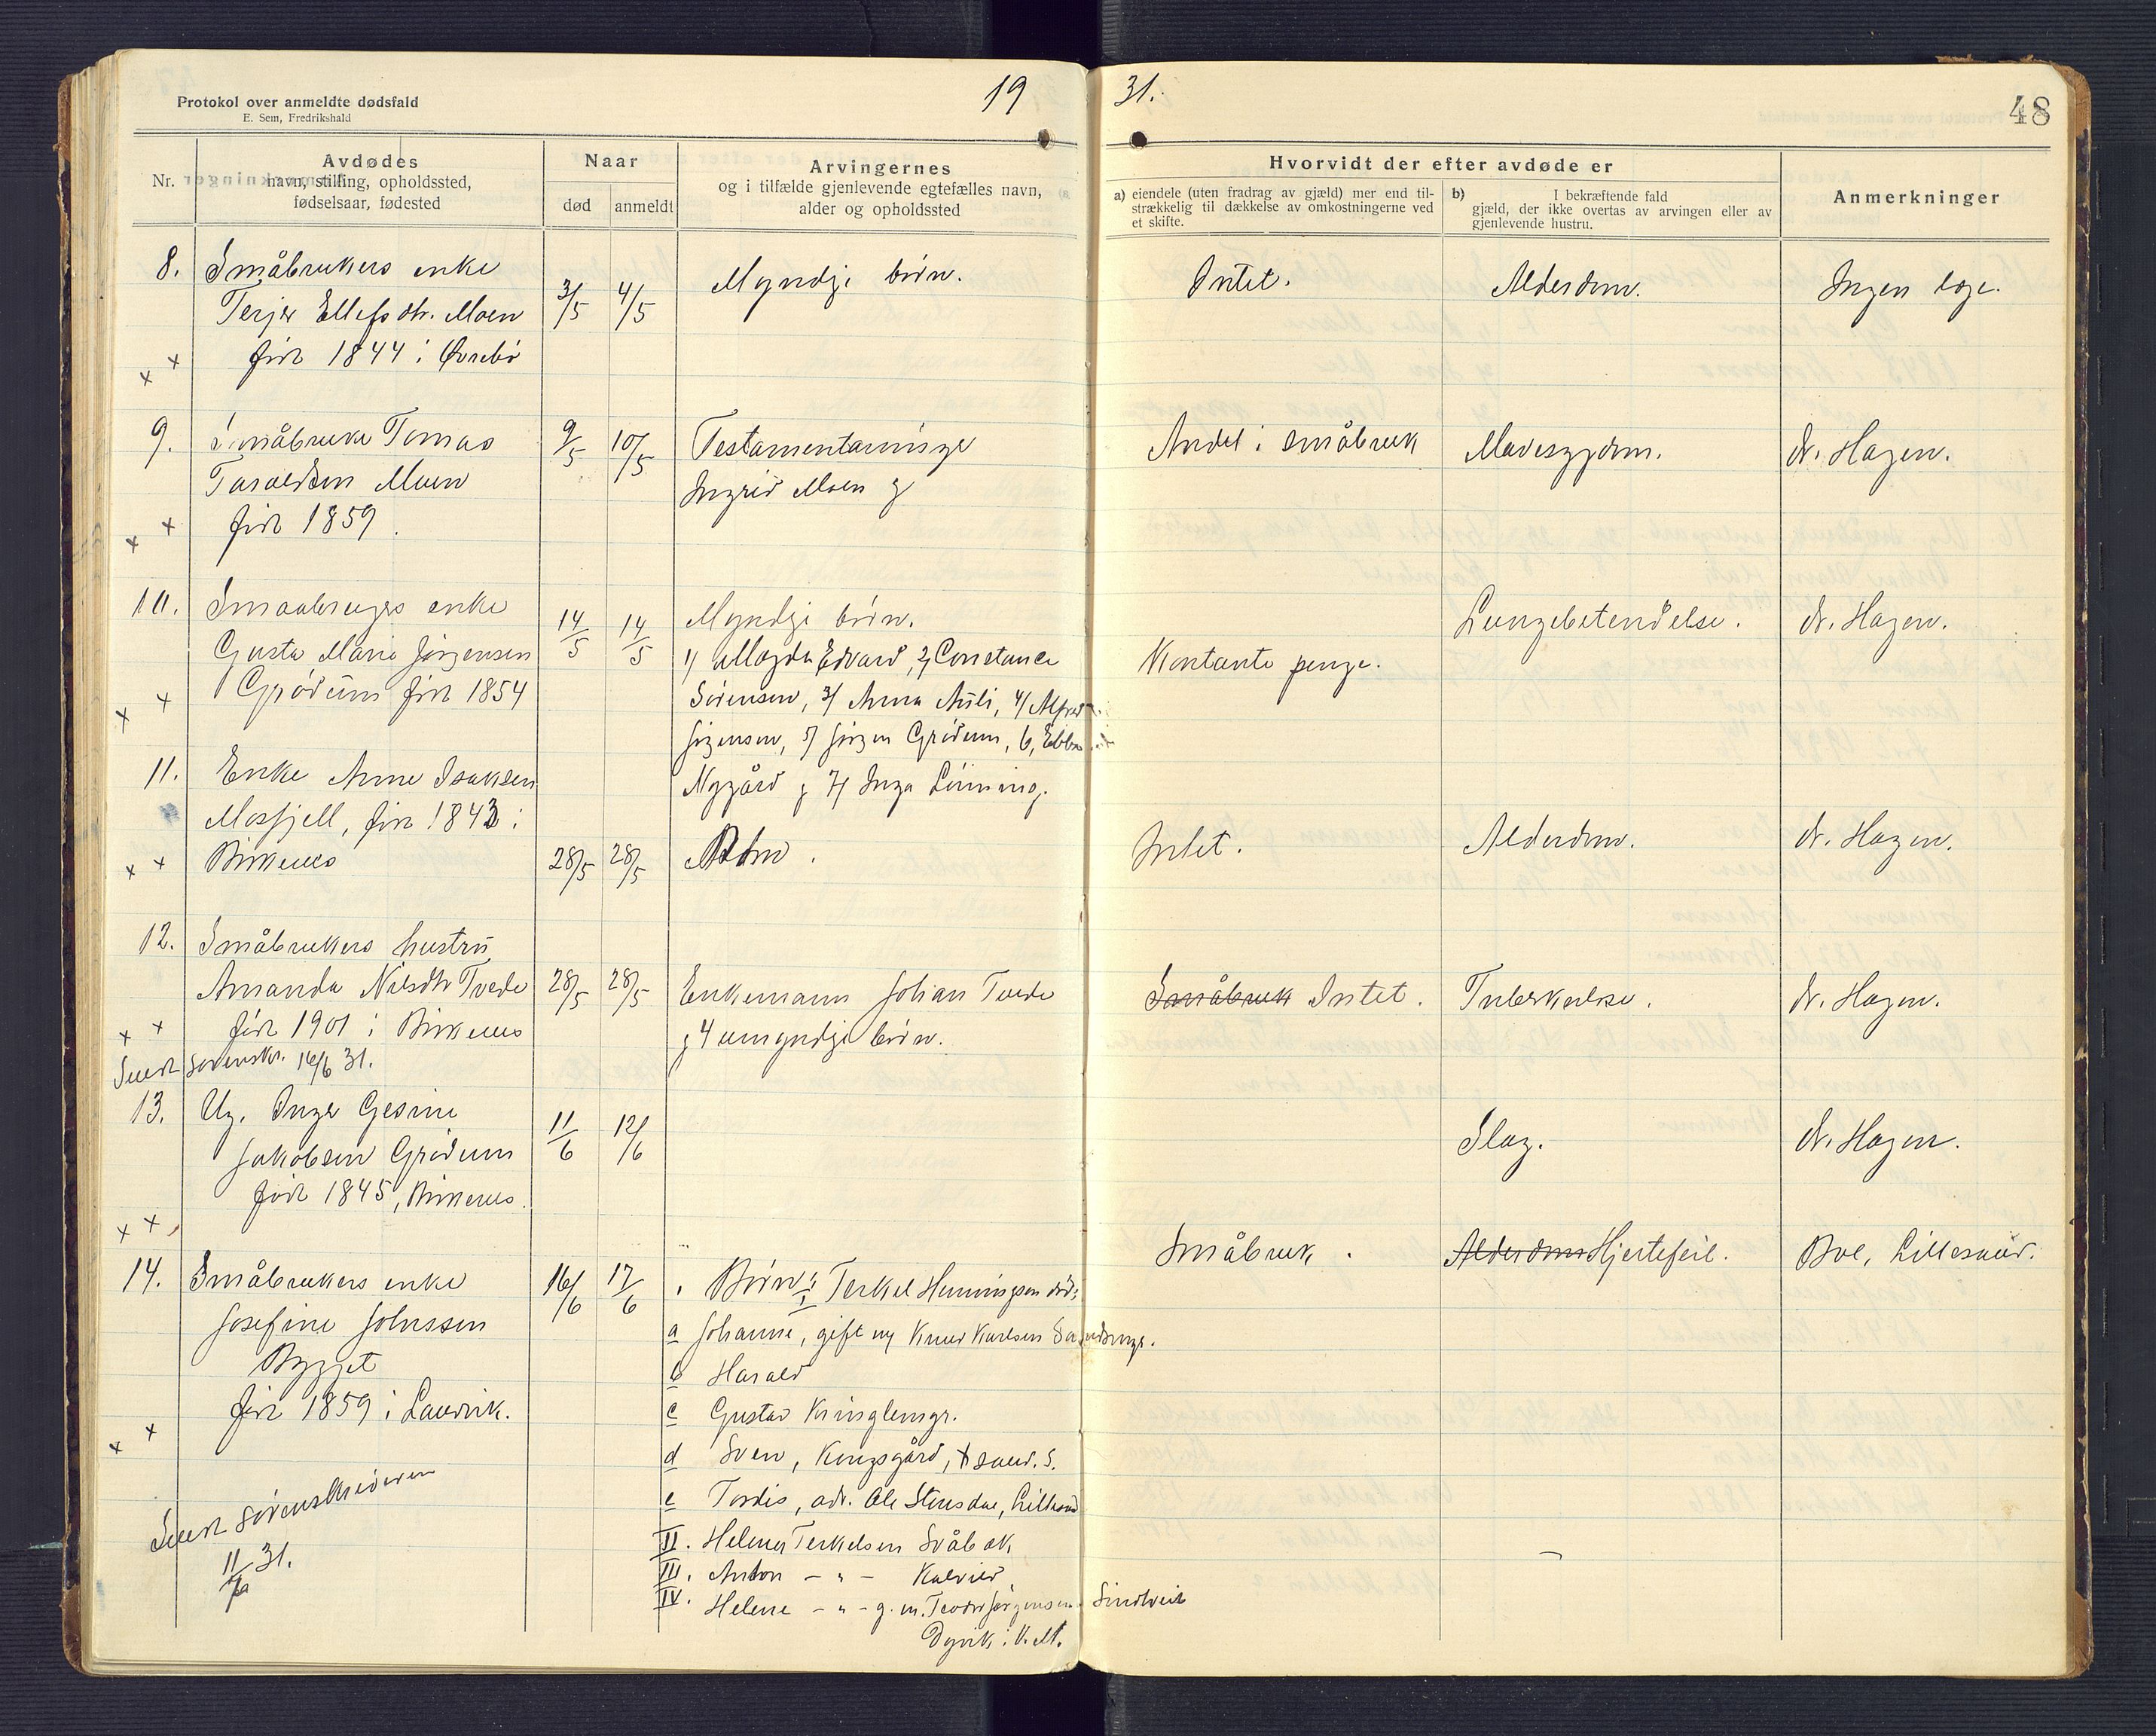 Protokol over anmeldte dødsfald
E. Sem, Fredrikshald
19 31.
48
Nr.
Avdødes
navn, stilling, opholdssted,
fødselsaar, fødested
Naar
død
anmeldt
Arvingernes
og i tilfælde gjenlevende egtefælles navn,
alder og opholdssted
Hvorvidt der efter avdøde er
a) eiendele (uten fradrag av gjæld) mer end til-
strækkelig til dækkelse av omkostningerne ved
et skifte.
b) I bekræftende fald
gjæld, der ikke overtas av arvingen eller av
gjenlevende hustru.
Anmerkninger
8. Småbrukers enke
Terjer Ellefsdtr. Moen
født 1844 i Øvrebø
3/5 4/5
Myndige børn.
Intet.
Alderdom.
Ingen læge.
9. Småbruker Tomas
Taraldsen Moen
født 1859.
9/5 10/5
Testamentarvinger
Ingrid Moen og
Andel i småbruk
Mavesygdom.
dr. Hagen.
10. Smaabrugers enke
Gusta Marie Jørgensen
Grødum født 1854
14/5 14/5
Myndige børn.
1/ Magda Edvard, 2/ Constance
Sørensen, 3/ Anna Auli, 4/ Alfred
Jørgensen, 5/ Jørgen Grødum, 6, Ebba
Nygård og 7/ Inga Lønning.
Kontante penge.
Lungebetendelse.
dr. Hagen.
11. Enke Anne Isaksen
Mosfjell, født 1843 i
Birkenes
28/5 28/5
Børn.
Intet.
Alderdom.
dr. Hagen.
12. Småbrukers hustru
Amanda Nilsdtr Tvede
født 1901 i Birkenes
Sendt sorenskr. 16/6 31.
28/5 28/5
Enkemann Johan Tvede
og 4 umyndige børn.
Småbruk Intet.
Tuberkulose.
dr. Hagen.
13. Ug. Inger Gesine
Jakobsen Grødum
født 1845, Birkenes.
11/6 12/6
Slag.
dr. Hagen.
14. Småbrukers enke
Josefine Johnssen
Bygget
født 1859 i Landvik.
Sendt sorenskriveren
31.
16/6 17/6
Børn: I Terkel Henningsen død:
a Johanne, gift m/ Knud Karlsen
b Harald
c Gustav
d Sven, Kongsgård, Kr.sand. S.
e Tordis, adr. Ole Stensdal, Lillesand
II. Helmer Terkelsen Svåbæk
III. Anton — " — Kalvild
IV. Helene — " — g. m. Teodor Jørgensen
Dyvik i V. M.
Småbruk.
Alderdom Hjertefeil.
Boe, Lillesand.